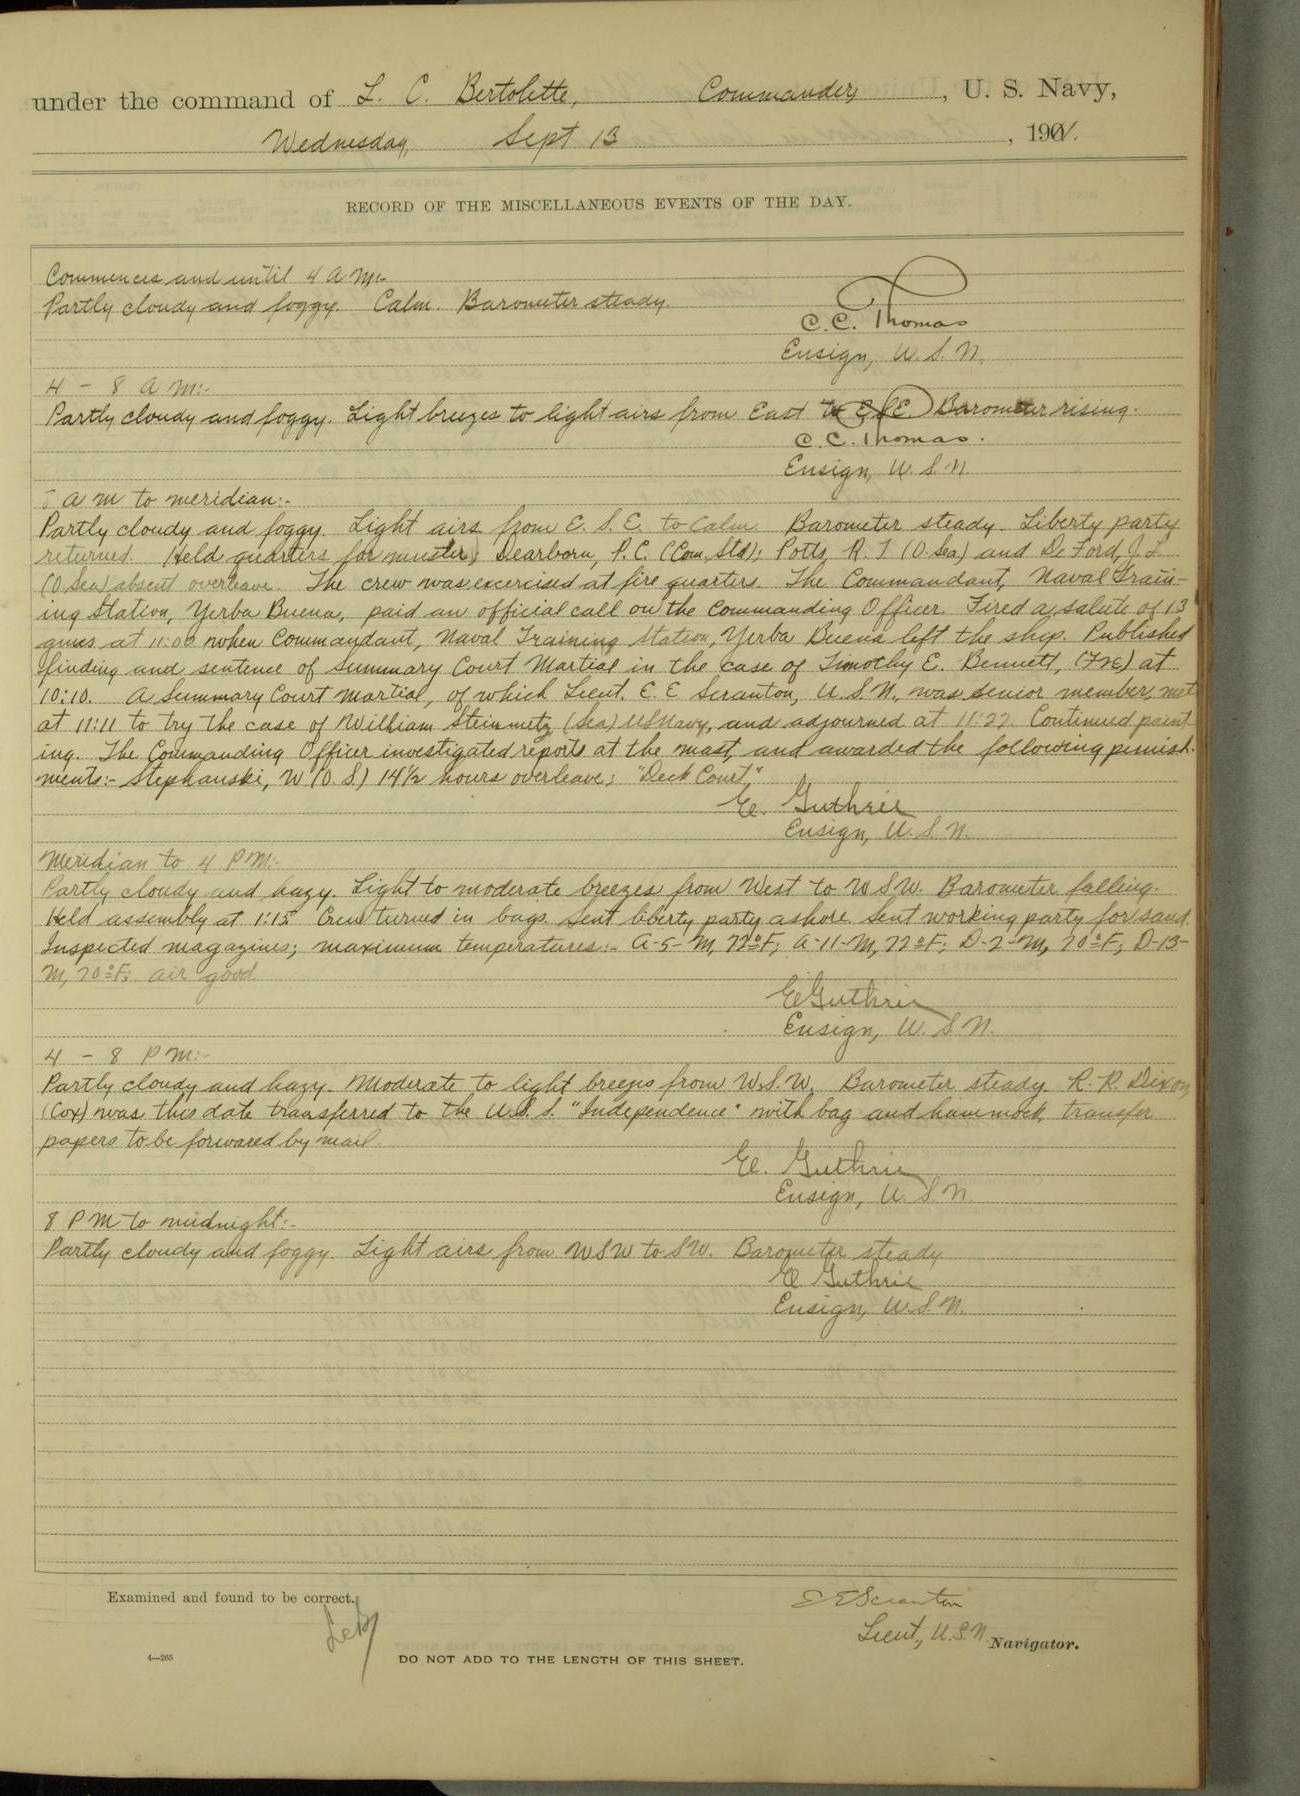 under the command of L. C. Bertolette, Commander, U. S. Navy,
Wednesday, Sept 13, 1901.
RECORD OF THE MISCELLANEOUS EVENTS OF THE DAY.
Commences and until 4 A M:-
Partly cloudy and foggy. Calm. Barometer steady.
C. C. Thomas
Ensign, U. S. N.
4 - 8 A M:-
Partly cloudy and foggy. Light breezes to light airs from East to E S E. Barometer rising.
C. C. Thomas.
Ensign, U. S. N.
8 A M to meridian:-
Partly cloudy and foggy. Light airs from E. S. E. to calm. Barometer steady. Liberty party
returned. Held quarters for muster; Dearborn, P. C. (Com. Std); Potts, R. T (O. Sea) and De Ford, J. L
(O. Sea) absent overleave. The crew was exercised at fire quarters. The Commandant, Naval Train-
ing Station, Yerba Buena, paid an official call on the Commanding Officer. Fired a salute of 13
guns at 11:00 when Commandant, Naval Training Station, Yerba Buena left the ship. Published
finding and sentence of Summary Court Martial in the case of Timothy E. Bennett, (F2c) at
10:10. A Summary Court Martial, of which Lieut. E. E Scranton, U. S. N., was senior member, met
at 11:11 to try the case of William Steinmetz (Sea) US Navy, and adjourned at 11:27. Continued paint-
ing. The Commanding Officer investigated reports at the mast, and awarded the following punish-
ments:- Stephanski, W (O. S.) 14½ hours overleave; "Deck Court"
E. Guthrie
Ensign, U. S. N.
Meridian to 4 P M:-
Partly cloudy and hazy. Light to moderate breezes from West to W S W. Barometer falling.
Held assembly at 1:15 Crew turned in bags. Sent liberty party ashore. Sent working party for sand.
Inspected magazines; maximum temperatures:- A-5-M, 72°F; A-11-M, 72°F; D-2-M, 70°F; D-13-
M, 70°F; air good.
E Guthrie
Ensign, U. S. N.
4 - 8 P M:-
Partly cloudy and hazy. Moderate to light breezes from W. S. W. Barometer steady. R. R. Dixon
(Cox) was this date transferred to the U. S. S. "Independence" with bag and hammock, transfer
papers to be forwared by mail.
E. Guthrie
Ensign, U. S. N.
8 P M to midnight:-
Partly cloudy and foggy. Light airs from W S W to S W. Barometer steady
E Guthrie
Ensign, U. S. N.
Examined and found to be correct.
LCB
E E Scranton
Lieut., U. S. N. Navigator.
4—265
DO NOT ADD TO THE LENGTH OF THIS SHEET.